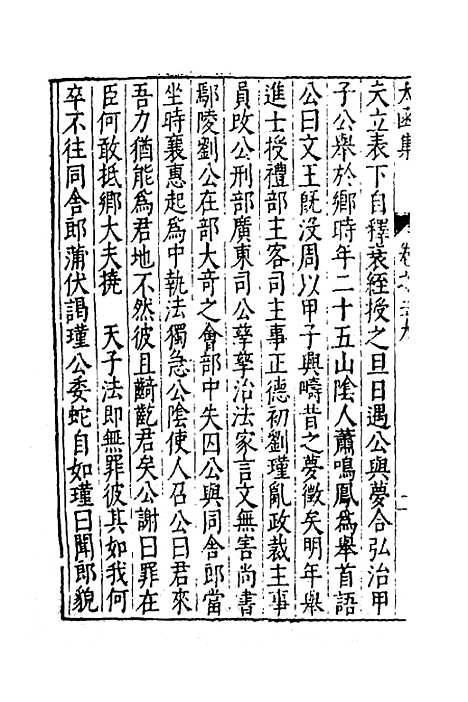 太函集
夫立表下自釋衰絰授之旦日遇公與夢合弘治甲
子公舉於鄉時年二十五山陰人蕭鳴鳳為舉首語
公曰文王旣沒周以甲子興疇昔之夢徵矣明年舉
進士授禮部主客司主事正德初劉瑾亂政裁主事
員改公刑部廣東司公孳孳治法家言文無害尚書
鄢陵劉公在部大奇之會部中失囚公與同舍郎當
坐時襄惠起為中執法獨急公陰使人召公曰君來
吾力猶能為君地不然彼且齮齕君矣公謝曰罪在
臣何敢抵鄉大夫撓 天子法即無罪彼其如我何
卒不往同舍郎蒲伏謁瑾公委蛇自如瑾曰聞郎貌